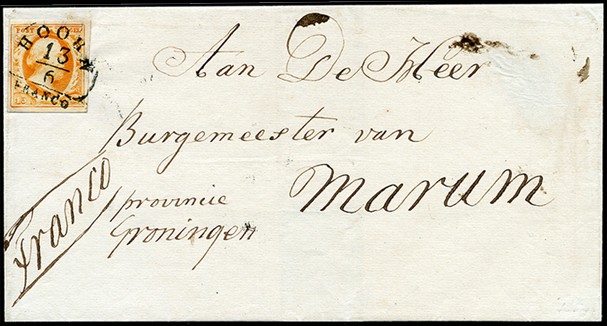 POST ZEGEL
HOORN
13
6
FRANCO
Aan De Heer
Burgemeester van
Marum
provincie
Groningen
Franco